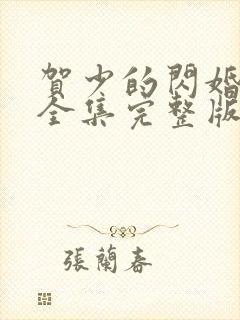 賀少的閃婚
全集完整版
張蘭春